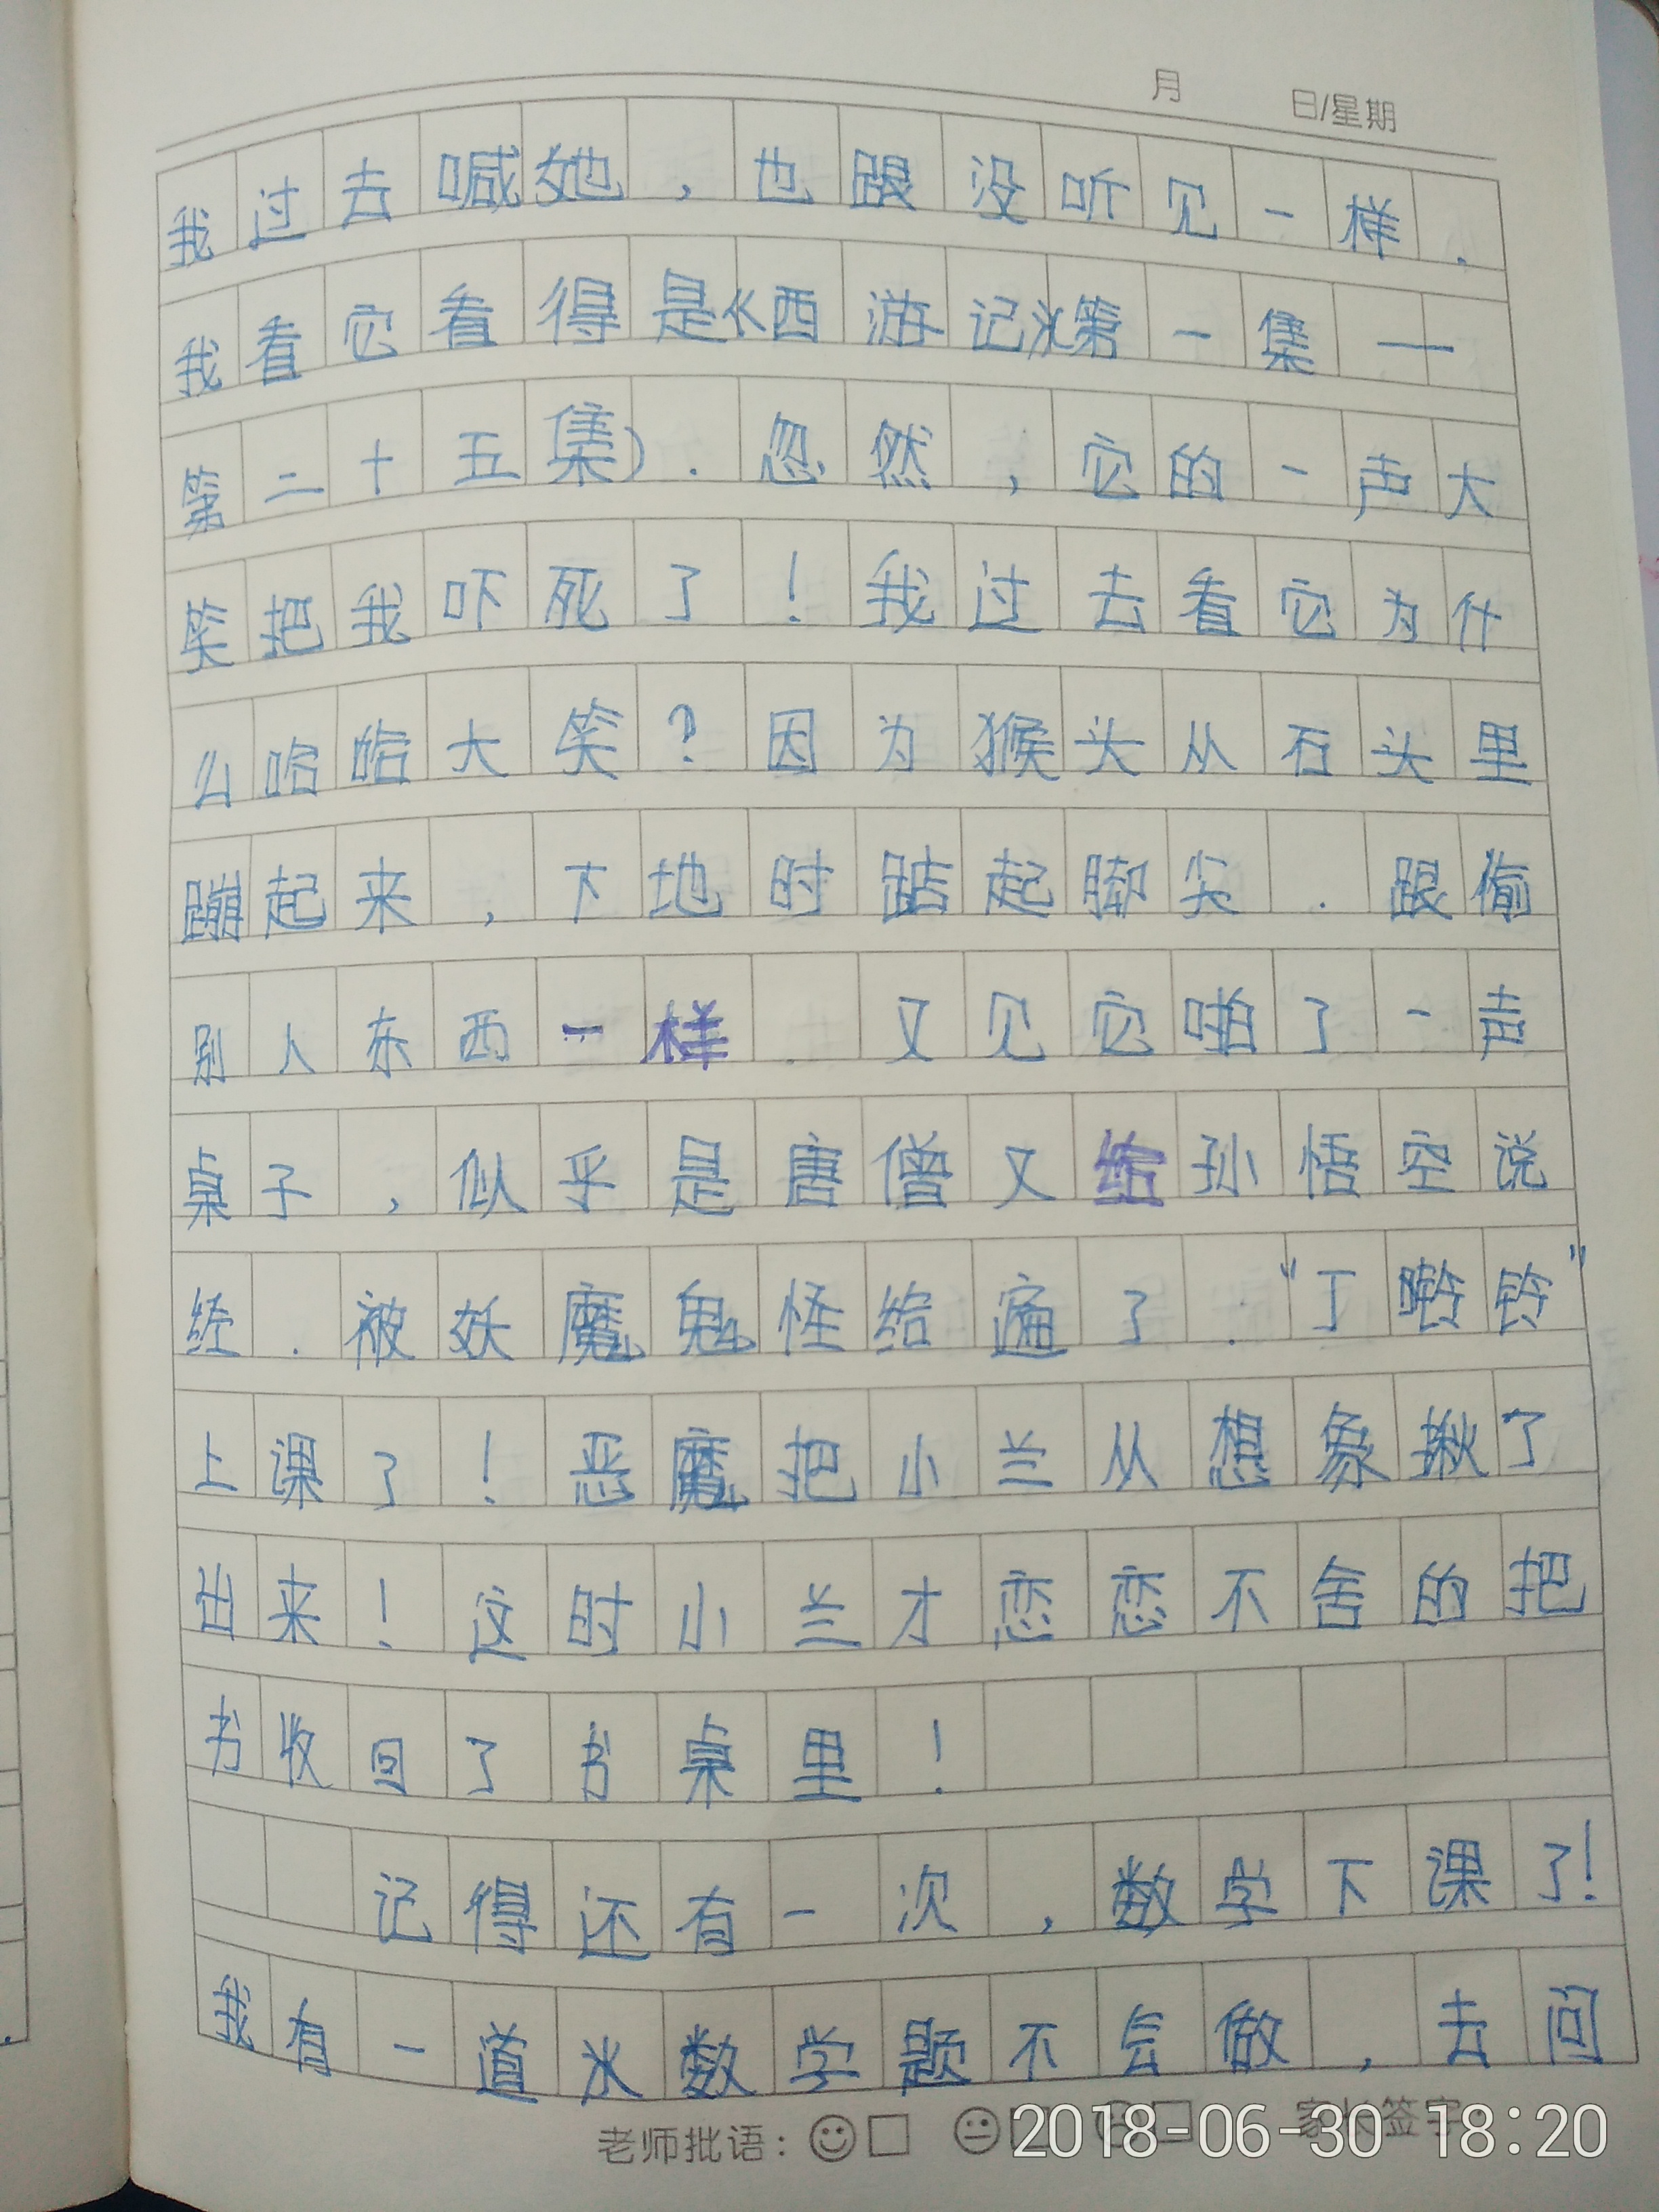 月 日/星期
我过去喊她，也跟没听见一样.
我看它看得是《西游记》(第一集——
第二十五集).忽然，它的一声大
笑把我吓死了！我过去看它为什
么哈哈大笑？因为猴头从石头里
蹦起来，下地时踮起脚尖.跟偷
别人东西一样.又见它啪了一声
桌子，似乎是唐僧又给孙悟空说
经.被妖魔鬼怪给骗了."丁嘟铃"
上课了！恶魔把小兰从想象揪了
出来！这时小兰才恋恋不舍的把
书收回了书桌里！
记得还有一次，数学下课了！
我有一道数学题不会做，去问
老师批语： 家长签字:
2018-06-30 18:20